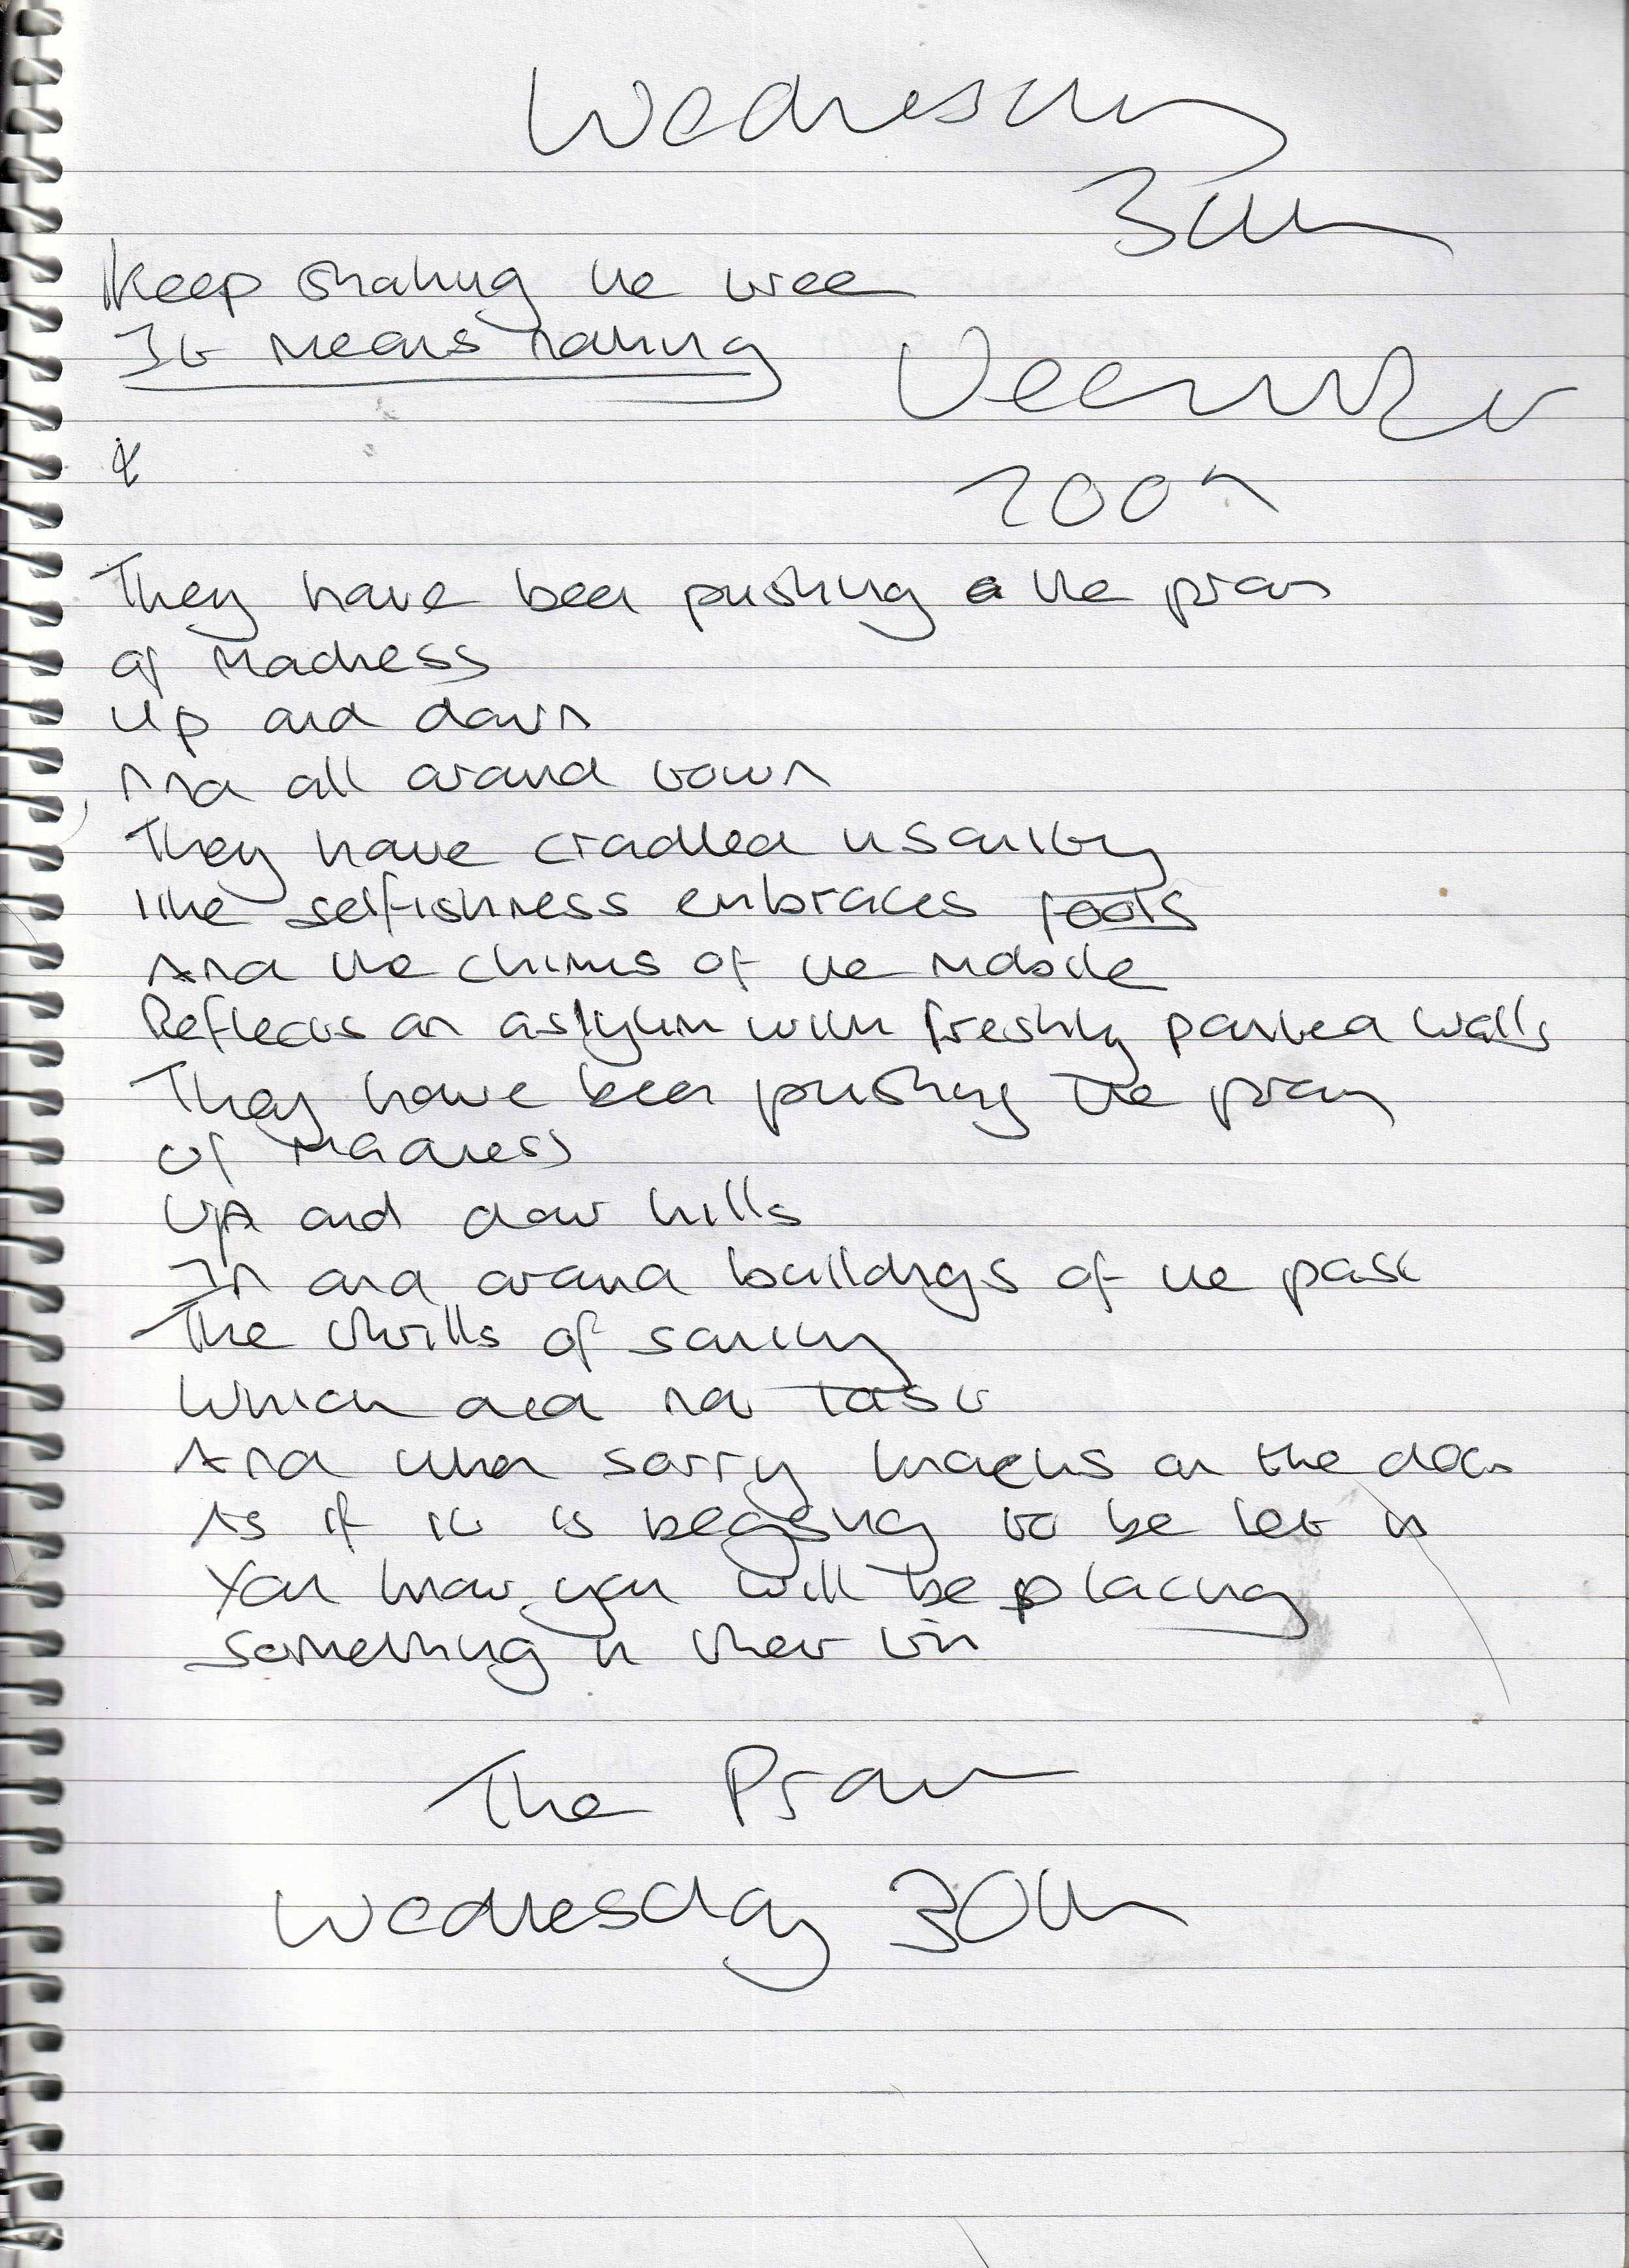 Wednesday
30th
Keep shaking the tree
It means nothing
December
2009
They have been pushing the pram
of madness
Up and down
And all around town
They have cradled insanity
like selfishness embraces fools
And the chimes of the mobile
Reflects an asylum with freshly painted walls
They have been pushing the pram
of madness
Up and down hills
In and around buildings of the past
The thrills of sanity
Which did not last
And when sorry knocks on the door
As if it is begging to be let in
You know you will be placing
something in their tin
The Pram
Wednesday 30th